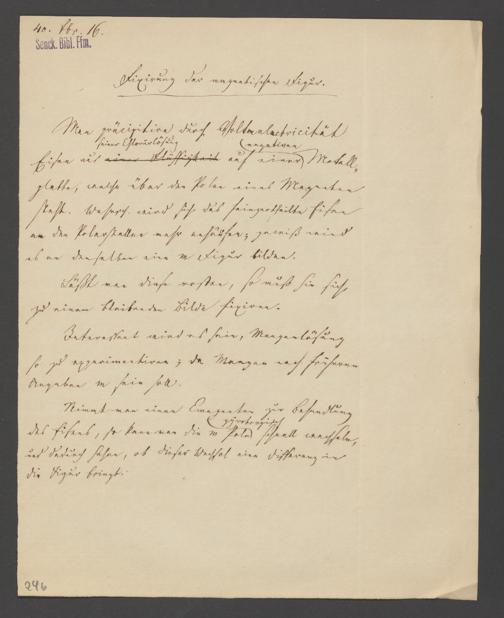 40. Abr. 16.
Senck. Bibl. Ffm.
Fixirung der magnetischen Figur.
Man präcipitire durch Voltaelectricität
seiner Chlorlösung negativen
Eisen aus einer Flüssigkeit auf einer Metall-
platte, welche über den Polen eines Magneten
steht. Wahrsch. wird sich das feinzertheilte Eisen
an den Polarstellen mehr anhäufen; gewiß wird
es an denselben eine m Figur bilden.
Läßt man diese rosten, so muß sie sich
zu einem bleibenden Bilde fixiren.
Interessant wird es sein, Manganlösung
so zu experimentiren; da Mangan nach früheren
Angaben m sein soll.
Nimmt man einen zur Behandlung
des Eisens, so kann man die m Pole schnell wechseln,
und dadurch sehen, ob dieser Wechsel eine Differenz in
die Figur bringt.
246